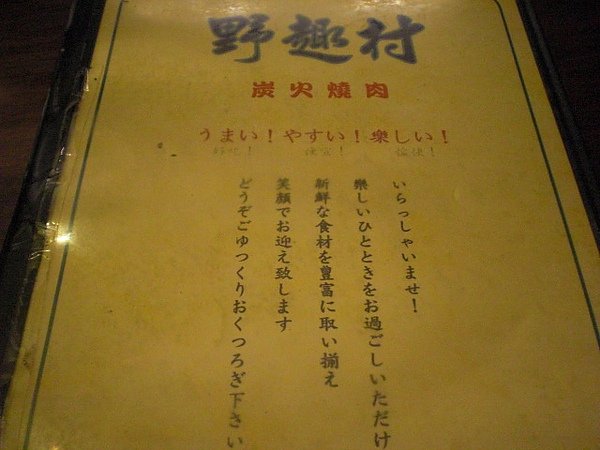 野趣村
炭火燒肉
うまい！やすい！楽しい！
好吃！ 便宜！ 愉快！
いらっしゃいませ！
楽しいひとときをお過ごしいただけ
新鮮な食材を豊富に取い揃え
笑顔でお迎え致します
どうぞごゆっくりおくつろぎ下さい